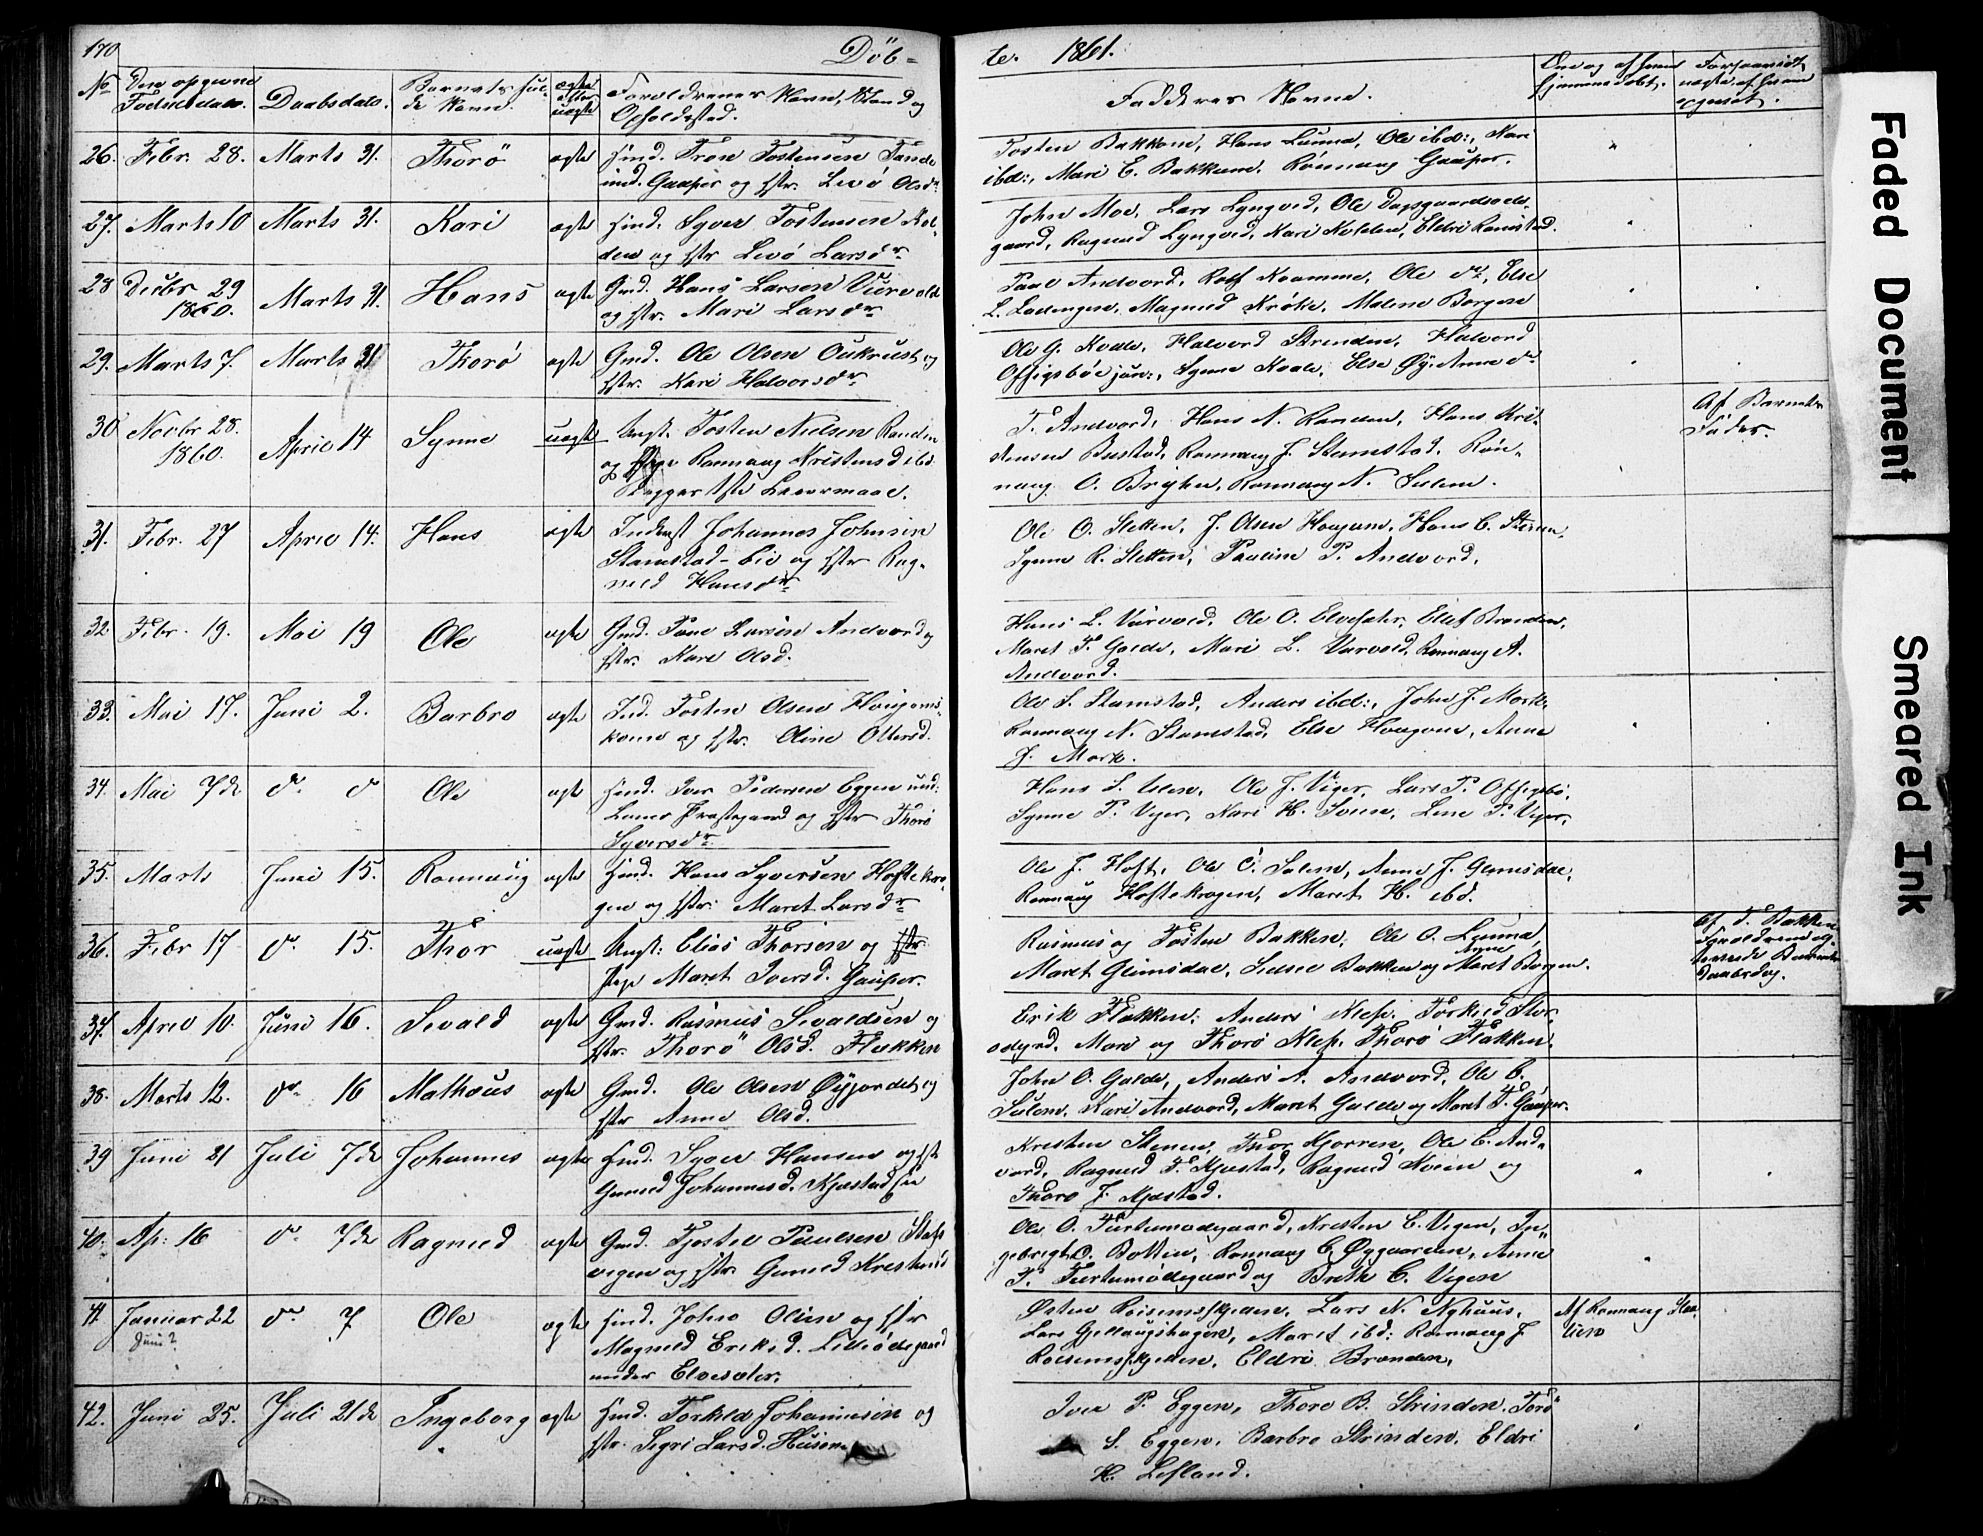 170
Döb=
te. 1861.
No
Den opgivne Fødselsdato.
Daabsdato.
Barnets fulde Navn.
ægte eller uægte
Forældrenes Navn, Stand og Opholdssted.
Faddernes Navne.
Om og af hvem hjemmedøbt.
26. Febr. 28. Marts 31. Thorö ægte Hmd. Tron Tostensen
und. Gaupar og Hstr. Livö Olsdr
Tosten Bakken, Hans Lunna, Ole ibd:, Kari
ibd:, Mari E. Bakken. Rönnaug Gaupar.
27. Marts 10 Marts 31. Kari ægte Hmd. Syver Tostensen Kol-
den og Hstr Livö Larsdr
John Moe, Lars Lyngved, Ole Dagsgaardsøde-
gaard, Ragnild Lyngved, Kari Kolden, Eldri Ramstad.
28 Decbr 29 1860. Marts 31. Hans ægte Gmd. Hans Larsen Vurvold
og Hstr. Mari Larsdr
Paal Andvord, Rolf Kvamme, Ole do, Else
L. Ladengen, Magnild Kröke, Malene Borgen
29. Marts 7. Marts 31 Thorö ægte Gmd. Ole Olsen Oukrust og
Hstr. Kari Halvorsdr
Ole G. Kvale, Halvord Strinden, Halvord
Offigsböe jun:, Synne Kvale, Else Øy, Anne do
30 Novbr 28. 1860. April 14 Synne uægte Ungk. Tosten Nielsen Randen
og Pige Ronnaug Kristensd ibd.
Begges 1ste Leiermaal.
T. Andvord, Hans N. Randen, Hans Kri-
stensen Bustad, Ronnaug J. Stamstad, Rön-
naug O. Brijken, Ronnaug N. Sulem.
Af Barnets
Fader.
31. Febr. 27 April 14. Hans ægte Inderst Johannes Johnsen
Stamstad-Eie og Hstr Rag-
nild Hansdr
Ole O. Sletten, J. Olsen Hougom, Hans C. Stenen,
Synne R. Sletten, Pauline P. Andvord.
32 Febr. 19. Mai 19 Ole ægte Gmd. Paul Larsen Andvord og
Hstr. Kari Olsd.
Hans L. Vurvold, Ole O. Elvesæter, Eilif Branden,
Maret T. Galde, Mari L. Vurvold, Ronnaug A.
Andvord.
33. Mai 17. Juni 2. Barbro ægte Ind. Tosten Olsen Hougoms-
og Hstr. Oline Ottersd.
Ole S. Stamstad, Anders ibd:, John J. Mork,
Ronnaug N. Stamstad, Else Hougom, Anne
J. Mork.
34. Mai 7de do do Ole ægte Hmd. Iver Pedersen Eggen und.
Loms Præstegaard og Hstr Thorö
Syversdr
Hans S. Ulen, Ole J. Viger, Lars P. Offigsbö,
Synne P. Viger, Kari H. Soleen, Lene P. Viger.
35. Marts Juni 15. Ronnaug ægte Hmd. Hans Syversen Hoftekro-
gen og Hstr. Maret Larsdr
Ole J. Hoft, Ole O. Sulem, Anne J. Glimsdal,
Ronnaug Hoftekrogen, Maret H. ibd.
36. Febr 17 do 15. Thor uægte Ungk: Elias Thorsen og Hstr
Pige Maret Iversd. Gaupar.
Rasmus og Tosten Bakken, Ole O. Lunna,
Anne
Maret Glimsdal, Bakken og Maret Borgen.
37. April 10. Juni 16. Sevald ægte Gmd. Rasmus Sevaldsen og
Hstr. Thorö Olsd. Flækken
Erik Flækken, Anders Klep, Torkild Stor-
Mari og Thorö Klep, Thorö Flakken.
38. Marts 12. do 16 Mathæus ægte Gmd. Ole Olsen Øygjordet og
Hstr Anne Olsd.
John O. Galde, Anders A. Andvord, Ole E.
Sulem, Kari Andvord, Maret Galde og Maret T. Gaupar.
39 Juni 21 Juli 7de Johannes ægte Hmd. Syver Hansen og Hst
Gunild Johannesd. Kjæstad Eie
Kristen Stenen, Thor Kjorren, Ole E. And-
vord, Ragnild T. Kjæstad, Ragnild Kveen og
Thoro J. Kjæstad.
40. Ap: 16 do 7de Ragnild ægte Gmd. Tjøstel Paulsen
vigen og Hstr. Gunild Krestensd
Ole O. Furtumodegaard, Kristen E. Vigen, In-
gebrigt O. Botten, Ronnaug C. Øygaarden, Anne
T. Furtumödegaard og Brith C. Vigen
41 Januar 22 do 7 Ole ægte Hmd. John Olsen og Hstr
Juni?
Magnild Eriksd. Lilleødegaard
under Elvesæter.
Østen Roisemsskjeiden. Lars N. Nyhuus.
Lars Gjellaugshagen, Maret ibd: Ronnaug J.
Roisemsskjeiden, Eldri Branden.
Af Ronnaug
42. Juni 25. Juli 21de Ingeborg ægte Hmd. Torkild Johannesen og
Hstr. Segri Larsd. Husom
Iver P. Eggen, Thore B. Strinden. Torö
S. Eggen, Barbro Strinden. Eldri
H. Lefland.
Faded Document
Smeared Ink